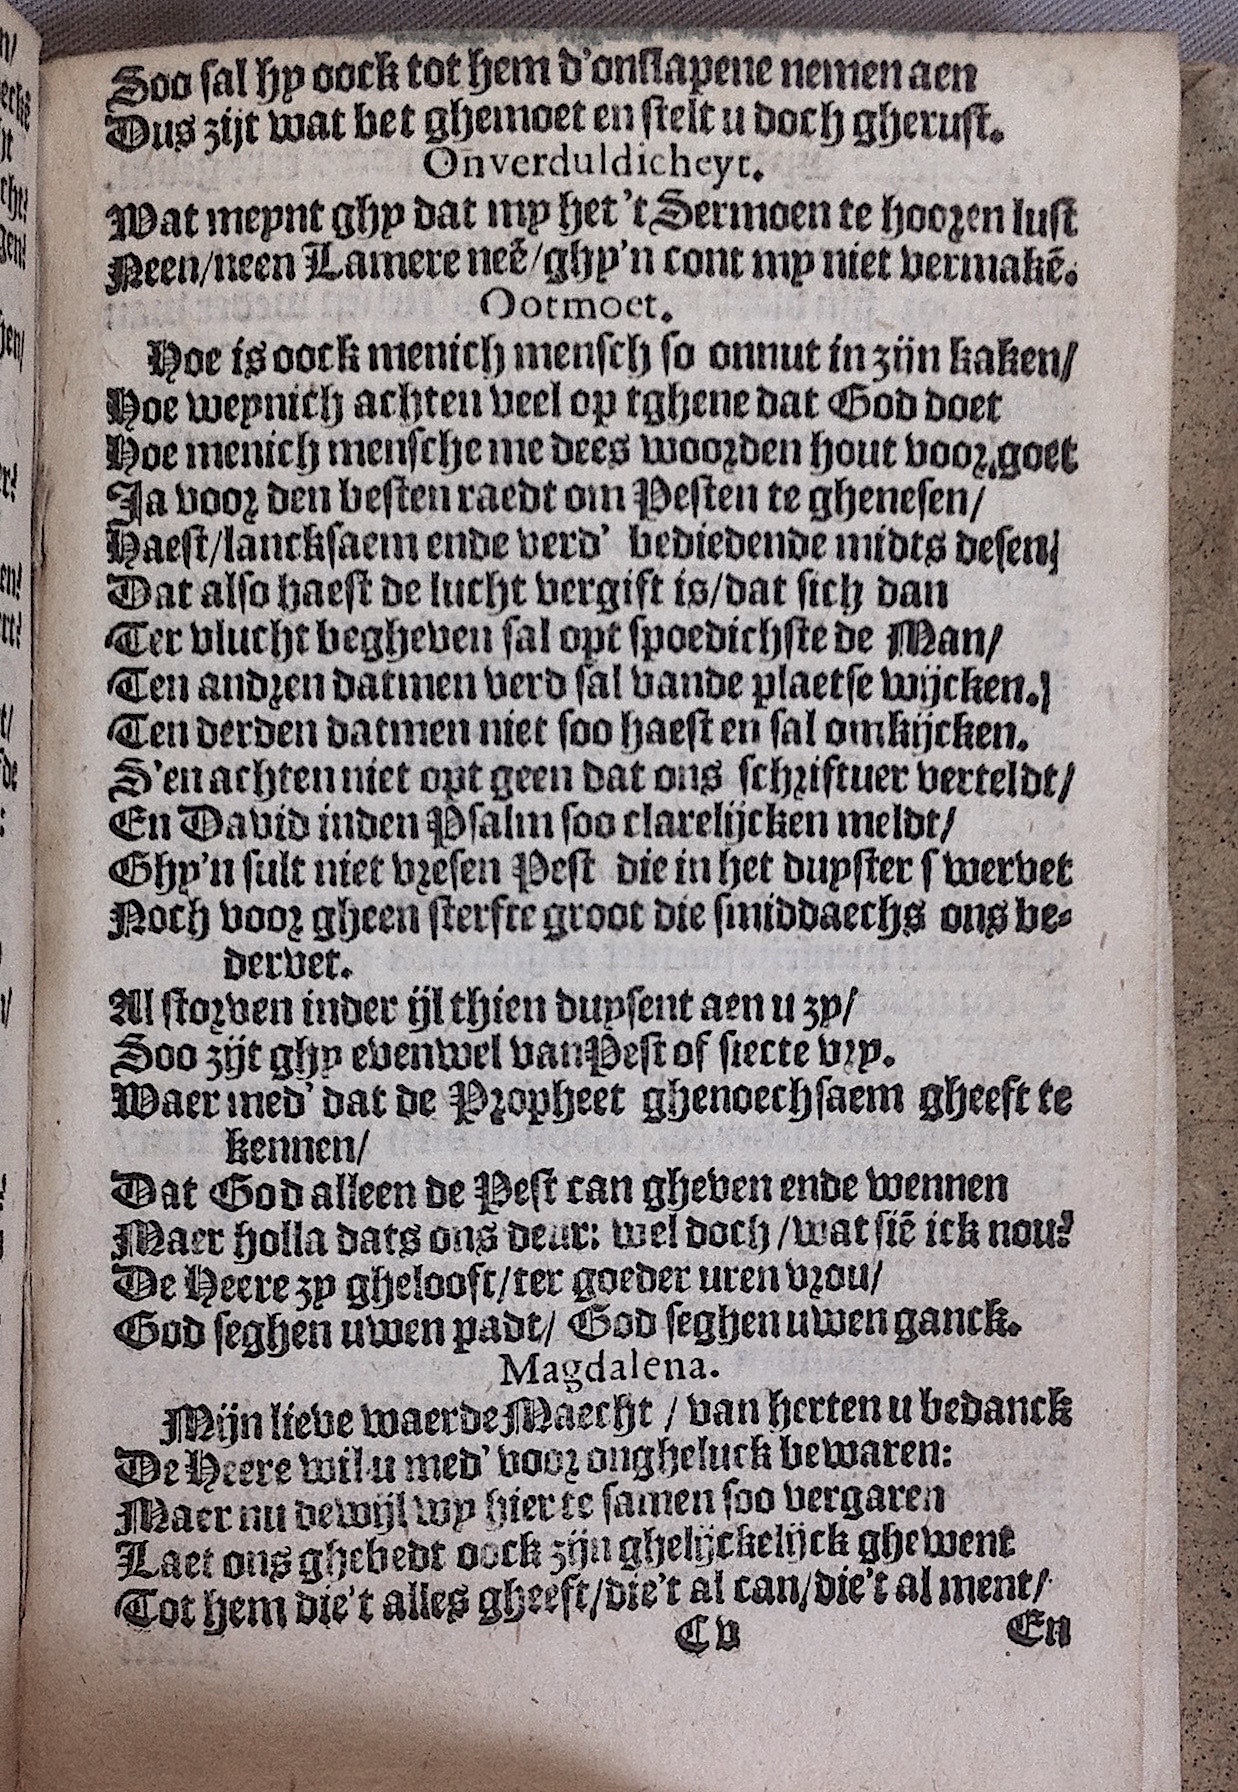 Soo sal hy oock tot hem d'onslapene nemen aen
Dus zijt wat bet ghemoet en stelt u doch gherust.
Onverduldicheyt.
Wat meynt ghy dat my het 't Sermoen te hooren lust
Neen/neen Lamere neē/ghy'n cont my niet vermakē.
Ootmoet.
Hoe is oock menich mensch so onnut in zijn kaken/
Hoe weynich achten veel op tghene dat God doet
Hoe menich mensche me dees woorden hout voor goet
Ja voor den besten raedt om Pesten te ghenesen/
Haest/lancksaem ende verd' bediedende midts desen/
Dat also haest de lucht vergift is/dat sich dan
Ter vlucht begheven sal opt spoedichste de Man/
Ten andren datmen verd sal vande plaetse wijcken.
Ten derden datmen niet soo haest en sal omkijcken.
S'en achten niet opt geen dat ons schriftuer verteldt/
En David inden Psalm soo clarelijcken meldt/
Ghy'n sult niet vresen Pest die in het duyster swervet
Noch voor gheen sterfte groot die smiddaechs ons be-
dervet.
Al storven inder ijl thien duysent aen u zy/
Soo zijt ghy evenwel van Pest of siecte vry.
Waer med' dat de Propheet ghenoechsaem gheeft te
kennen/
Dat God alleen de Pest can gheven ende wennen
Maer holla dats ons deur: wel doch/wat siē ick nou?
De Heere zy ghelooft/ter goeder uren vrou/
God seghen uwen padt/ God seghen uwen ganck.
Magdalena.
Mijn lieve waerde Maecht / van herten u bedanck
De Heere wil u med' voor ongheluck bewaren:
Maer nu dewijl wy hier te samen soo vergaren
Laet ons ghebedt oock zijn ghelijckelijck ghewent
Tot hem die't alles gheeft/die't al can/die't al ment/
C v En